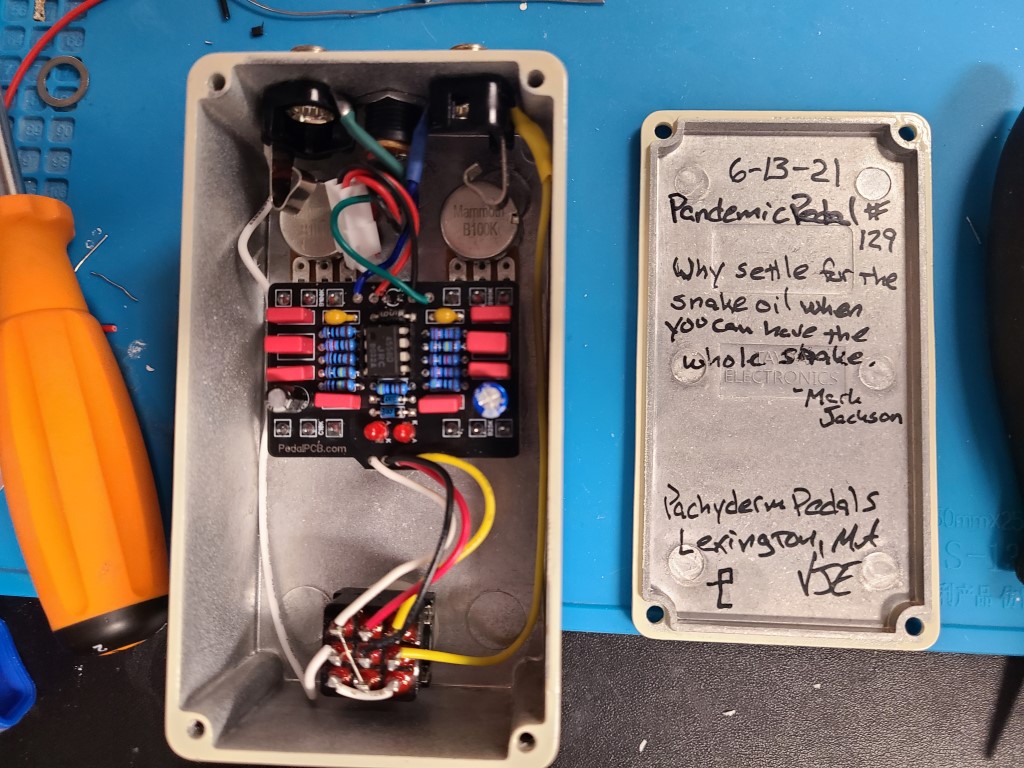 Mammoth
B100K
PedalPCB.com
6-13-21
Pandemic Pedal #
129
Why settle for the
snake oil when
you can have the
whole snake.
ELECTRONICS
-Mark
Jackson
Pachyderm Pedals
Lexington, MA
VJE